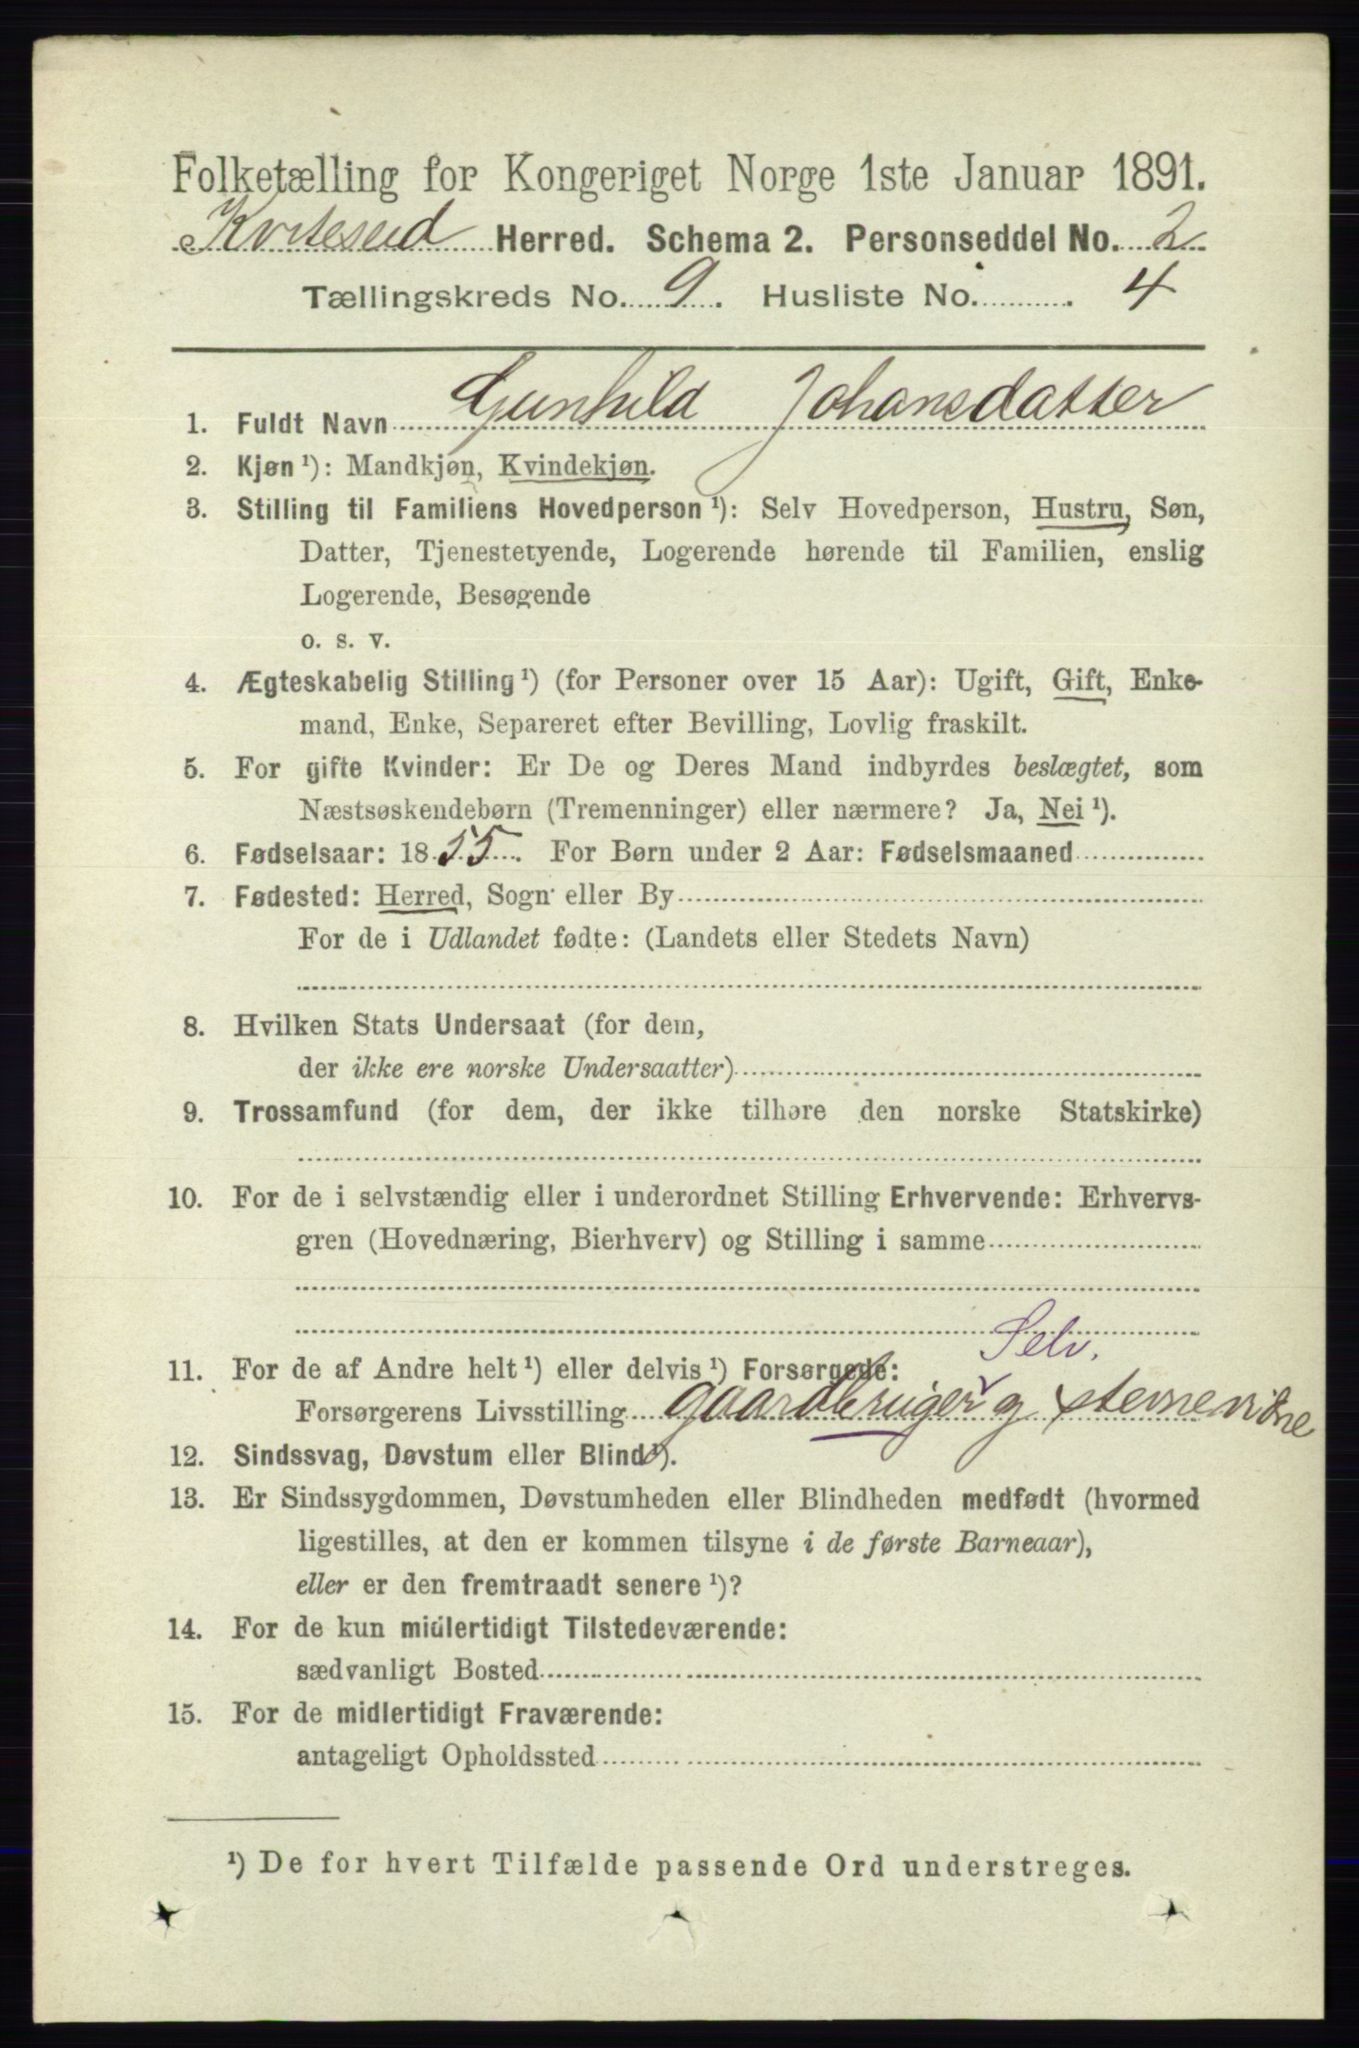 Folketælling for Kongeriget Norge 1ste Januar 1891.
Kviteseid Herred. Schema 2. Personseddel No. 2
Tællingskreds No. 9. Husliste No. 4
1. Fuldt Navn Gunhild Johansdatter
2. Kjøn¹): Mandkjøn, Kvindekjøn.
3. Stilling til Familiens Hovedperson¹): Selv Hovedperson, Hustru, Søn,
Datter, Tjenestetyende, Logerende hørende til Familien, enslig
Logerende, Besøgende
o. s. v.
4. Ægteskabelig Stilling¹) (for Personer over 15 Aar): Ugift, Gift, Enke-
mand, Enke, Separeret efter Bevilling, Lovlig fraskilt.
5. For gifte Kvinder: Er De og Deres Mand indbyrdes beslægtet, som
Næstsøskendebørn (Tremenninger) eller nærmere? Ja, Nei¹).
6. Fødselsaar: 1855. For Børn under 2 Aar: Fødselsmaaned
7. Fødested: Herred, Sogn eller By
For de i Udlandet fødte: (Landets eller Stedets Navn)
8. Hvilken Stats Undersaat (for dem,
der ikke ere norske Undersaatter)
9. Trossamfund (for dem, der ikke tilhøre den norske Statskirke)
10. For de i selvstændig eller i underordnet Stilling Erhvervende: Erhvervs-
gren (Hovednæring, Bierhverv) og Stilling i samme
Selv.
11. For de af Andre helt¹) eller delvis¹) Forsørgede:
Forsørgerens Livsstilling gaardbruger og stevnevidne
12. Sindssvag, Døvstum eller Blind¹).
13. Er Sindssygdommen, Døvstumheden eller Blindheden medfødt (hvormed
ligestilles, at den er kommen tilsyne i de første Barneaar),
eller er den fremtraadt senere¹)?
14. For de kun midlertidigt Tilstedeværende:
sædvanligt Bosted
15. For de midlertidigt Fraværende:
antageligt Opholdssted
¹) De for hvert Tilfælde passende Ord understreges.